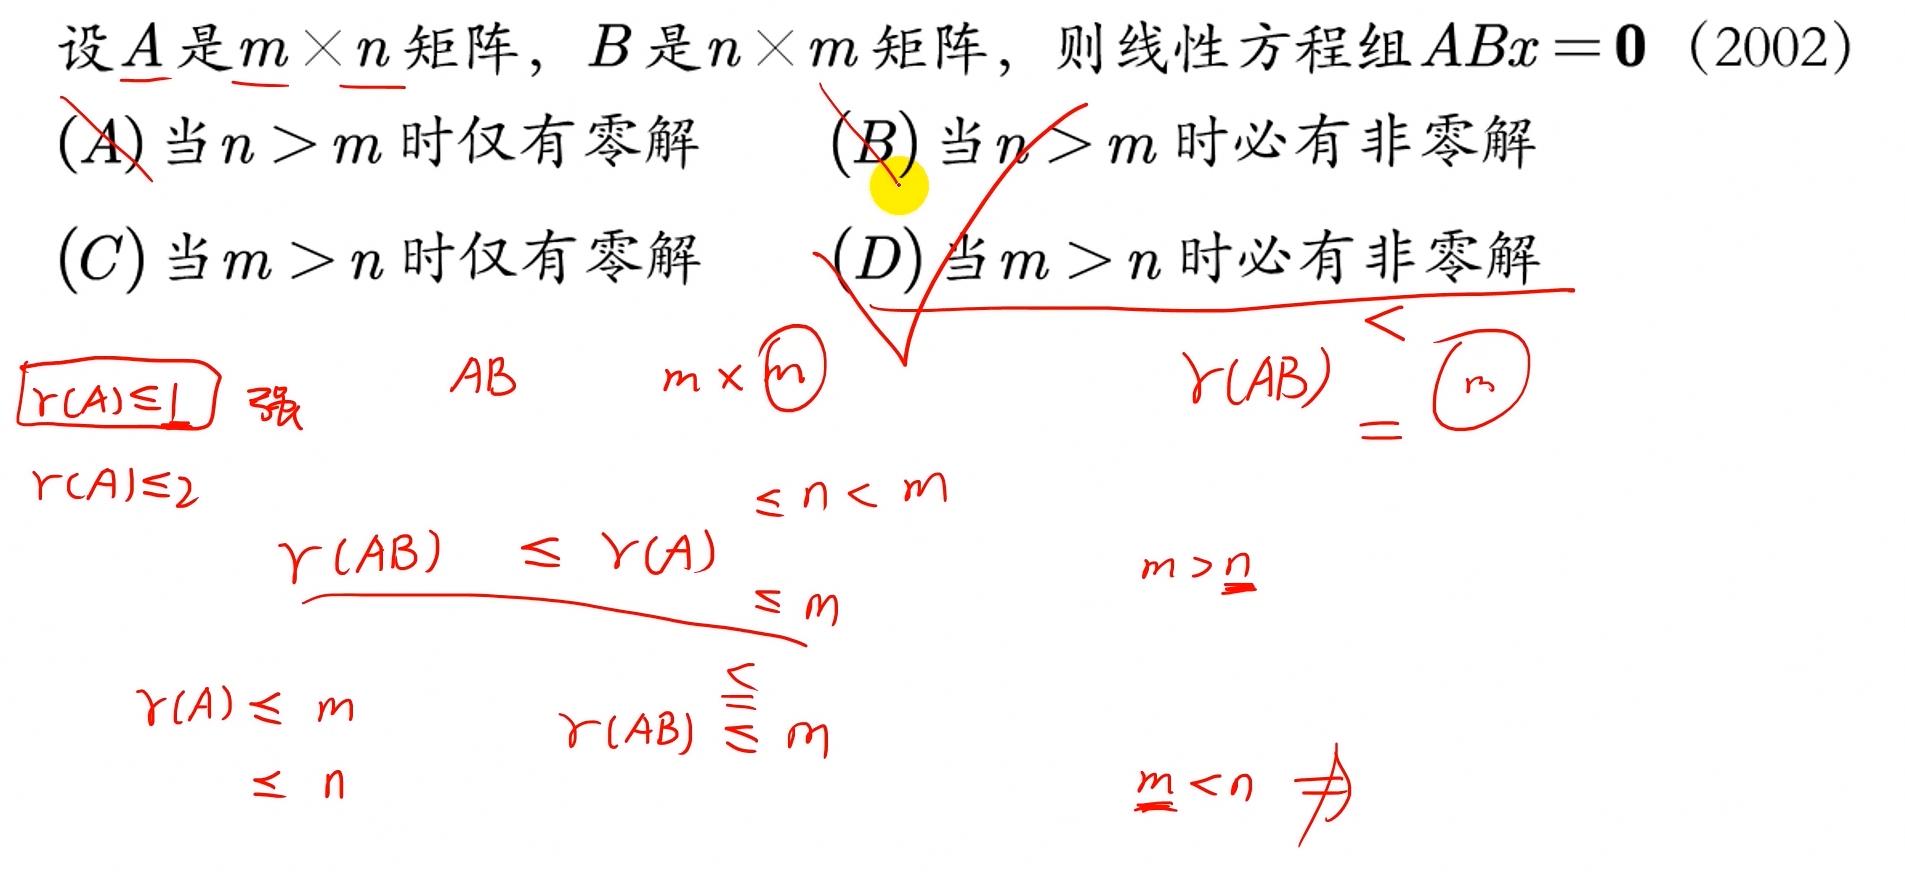 设A是m×n矩阵，B是n×m矩阵，则线性方程组ABx=0（2002）
(A)当n>m时仅有零解 (B)当n>m时必有非零解
(C)当m>n时仅有零解 (D)当m>n时必有非零解
r(A)≤1 强 AB m×m r(AB) < = m
r(A)≤2
≤n<m
r(AB) ≤ r(A) m>n
≤m
r(A)≤m r(AB) < = ≤ m
≤n m<n ⇏